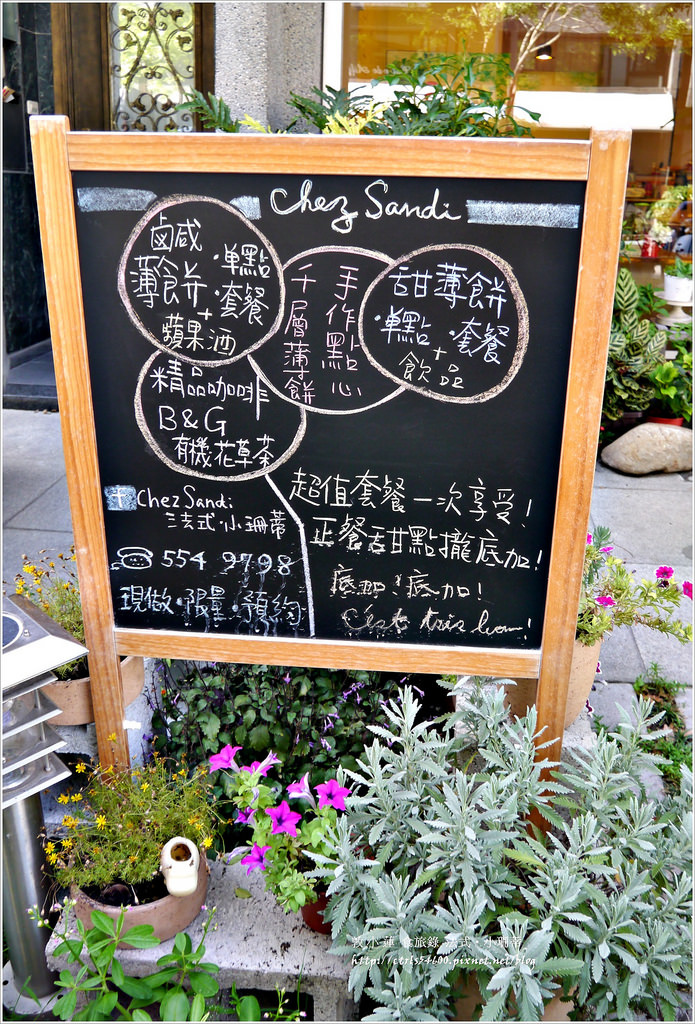 Chez Sandi
鹹
薄餅
·單點
·套餐
+
蘋果酒
手作點心
千層薄餅
甜薄餅
·單點 ·套餐
+
飲品
精品咖啡
B&G
有機花草茶
Chez Sandi
法式·小珊蒂
☏ 554 9798
現做·限量·預約
超值套餐一次享受!
正餐甜點攏底加!
底加!底加!
C'est très bon!
法式·小珊蒂
http://ctrls54600.pixnet.net/blog